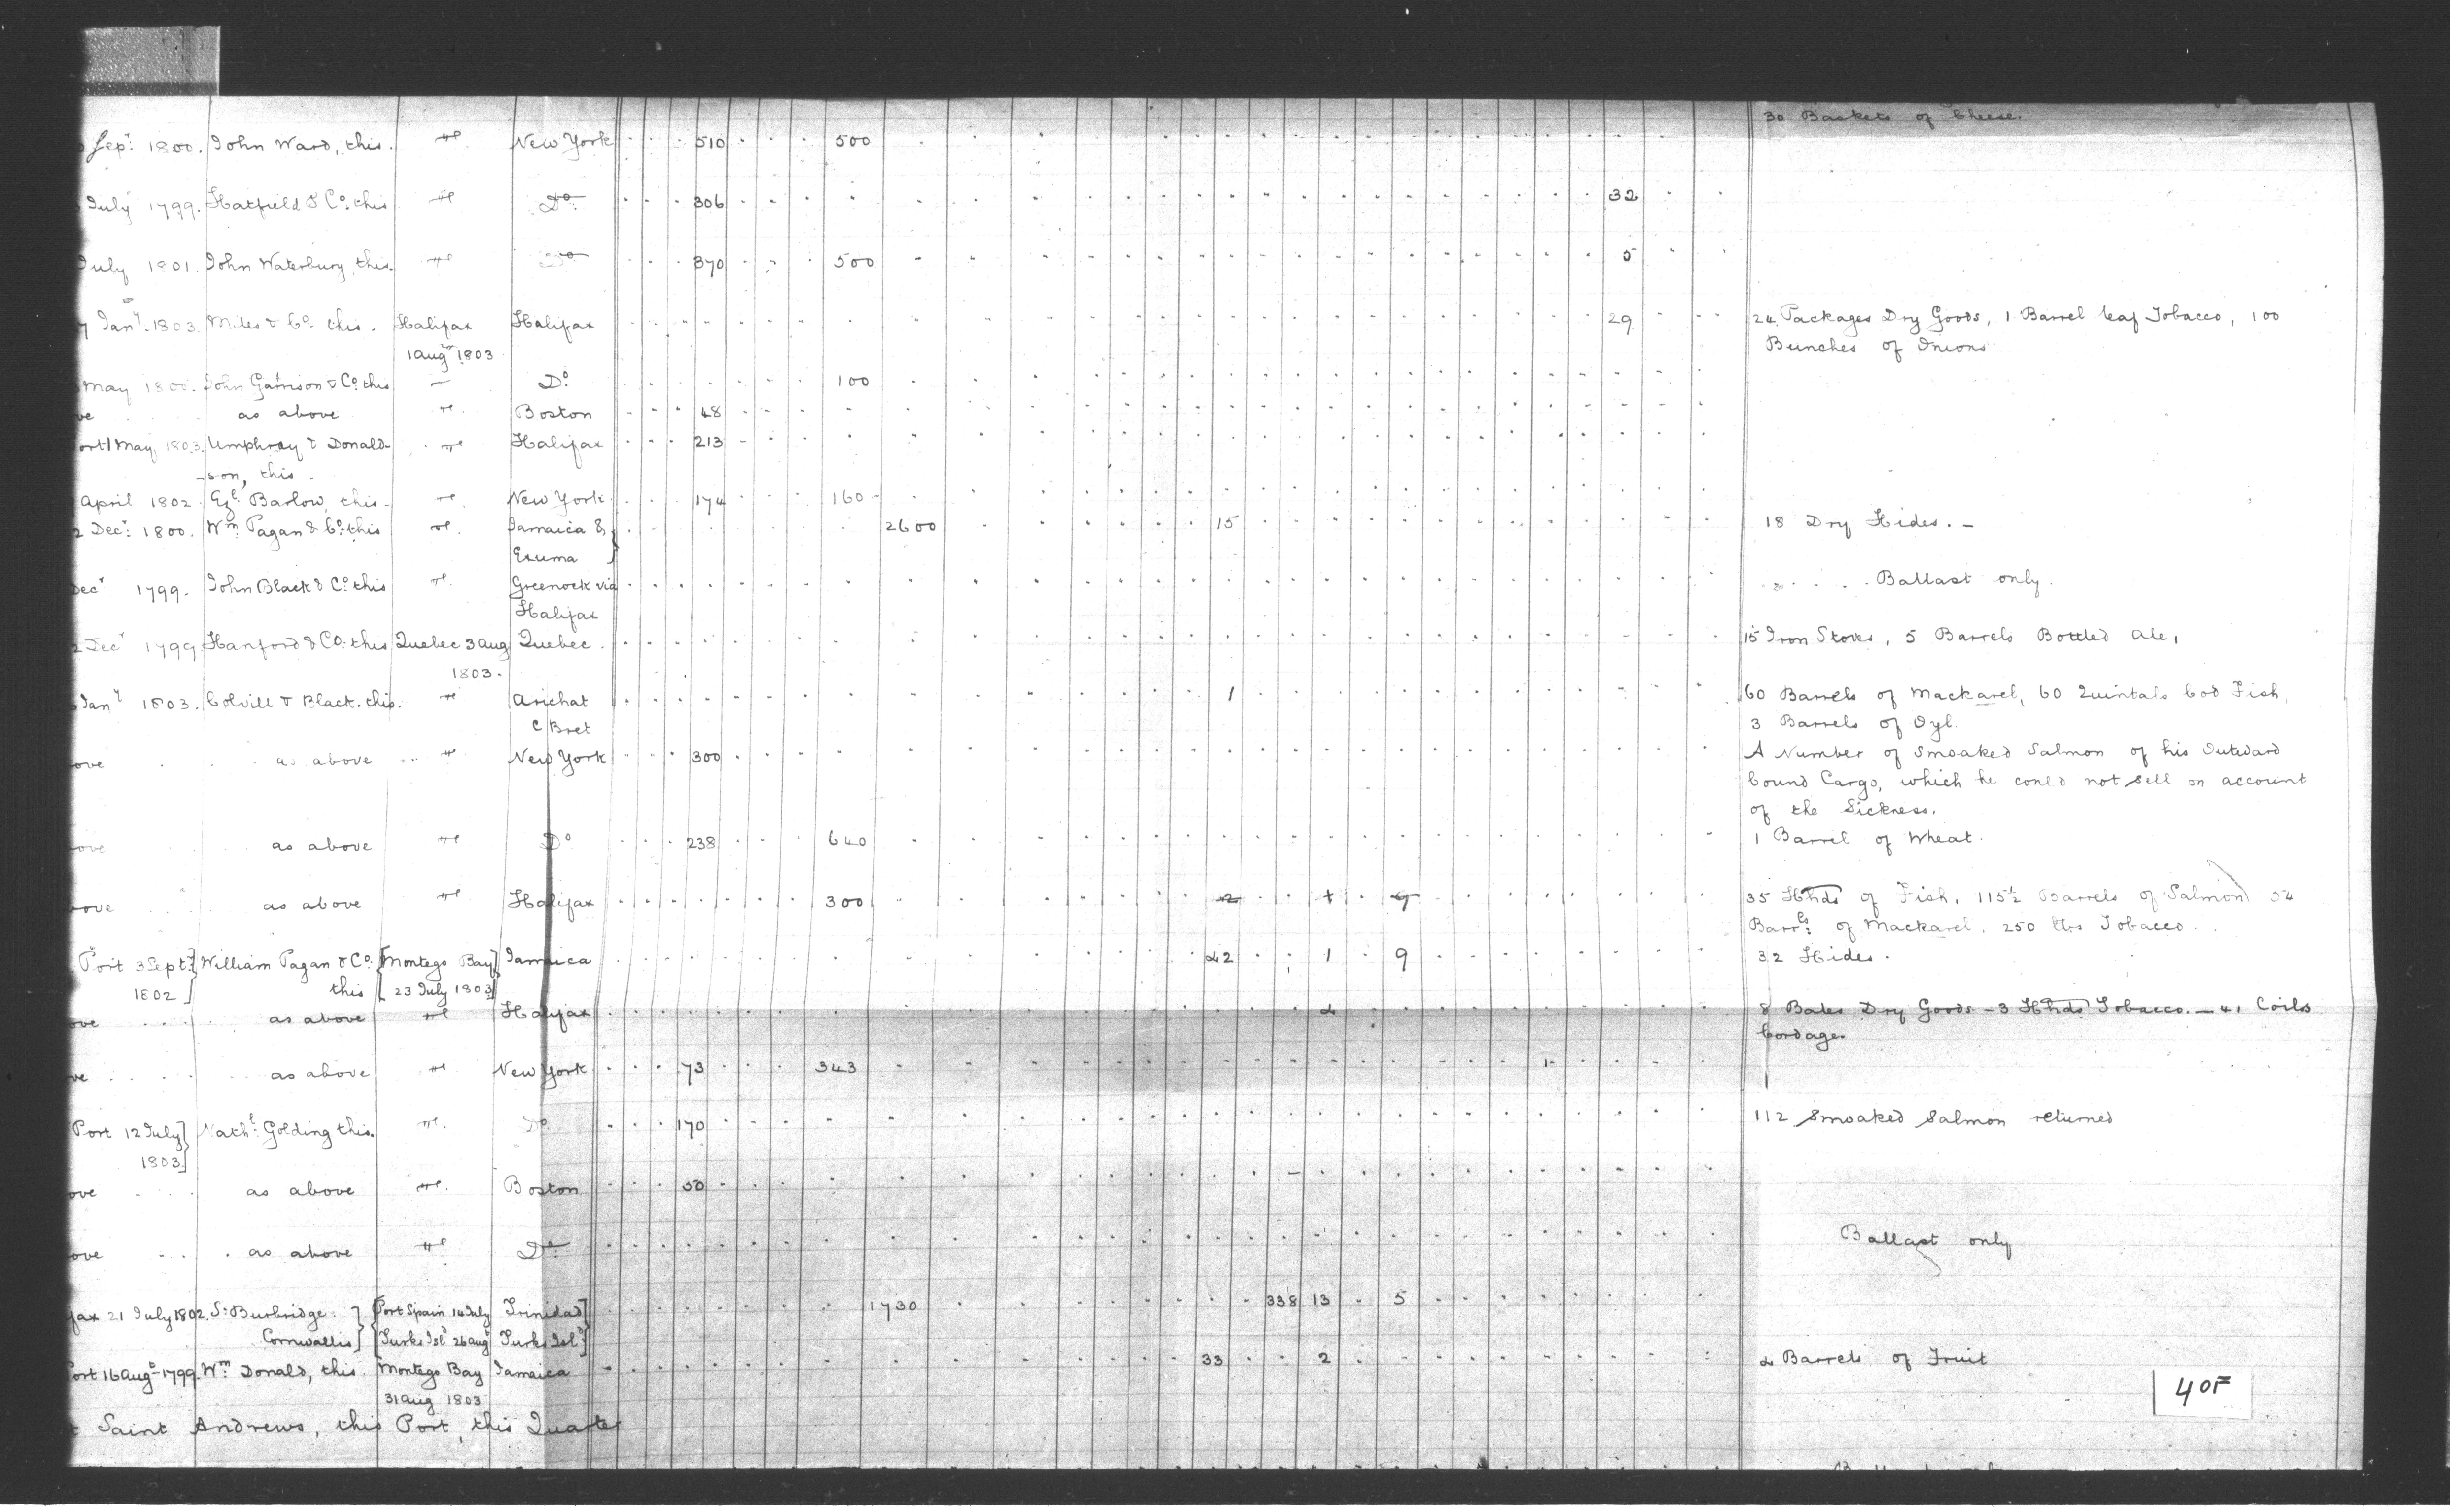 30 Baskets of Cheese.
Sepr 1800. John Ward, this. New York 510 500
July 1799. Hatfield & Co. this Do. 306 32
July 1801. John Waterbury, this. Do 370 500 5
7 Jany. 1803. Miles & Co. this. Halifax Halifax 29 24 Packages Dry Goods, 1 Barrel leaf Tobacco, 100
1 Augt 1803 Bunches of Onions
May 1800. John Garrison & Co. this — Do 100
ve as above Boston 48
ort 1 May 1803. Umphray & Donald- Halifax 213
-son, this.
April 1802 Ezl. Barlow, this. New York 174 160
2 Decr: 1800. Wm Pagan & Co. this Jamaica & } 2600 15 18 Dry Hides. –
Exuma
Decr 1799. John Black & Co. this Greenock via Ballast only.
Halifax
2 Decr 1799 Hanford & Co. this Quebec 3 Aug Quebec. 15 Iron Stoves, 5 Barrels Bottled Ale,
1803.
Jany 1803. Colvill & Black. this. Arichat 1 60 Barrels of Mackarel, 60 Quintals Cod Fish,
C Bret 3 Barrels of Oyl.
ove as above New York 300 A Number of Smoaked Salmon of his Outward
bound Cargo, which he could not sell on account
of the Sickness.
ove as above Do 238 640 1 Barrel of Wheat.
ove as above Halifax 300 2 1 9 35 Hhds of Fish, 115½ Barrels of Salmon 54
Barrls: of Mackarel, 250 lbs Tobacco.
Port 3 Sept.] William Pagan & Co. [Montego Bay] Jamaica 42 1 9 32 Hides.
1802] this [23 July 1803]
ove as above Halifax 4 8 Bales Dry Goods – 3 Hhds Tobacco. – 41 Coils
Cordage.
ve as above New York 73 343 1
Port 12 July] Nathl. Golding this. Do. 170 112 Smoaked Salmon returned
1803]
ove as above Boston 50
ove as above Do. Ballast only
fax 21 July 1802. S. Burbridge. } [Port Spain 14 July Trinidad] 1730 338 13 5
Cornwallis} [Turks Isld 26 Augt Turks Isld]
Port 16 Augt 1799. Wm. Donald, this. Montego Bay Jamaica 33 2 4 Barrels of Fruit
31 Aug 1803
t Saint Andrews, this Port, this Quarter
40F